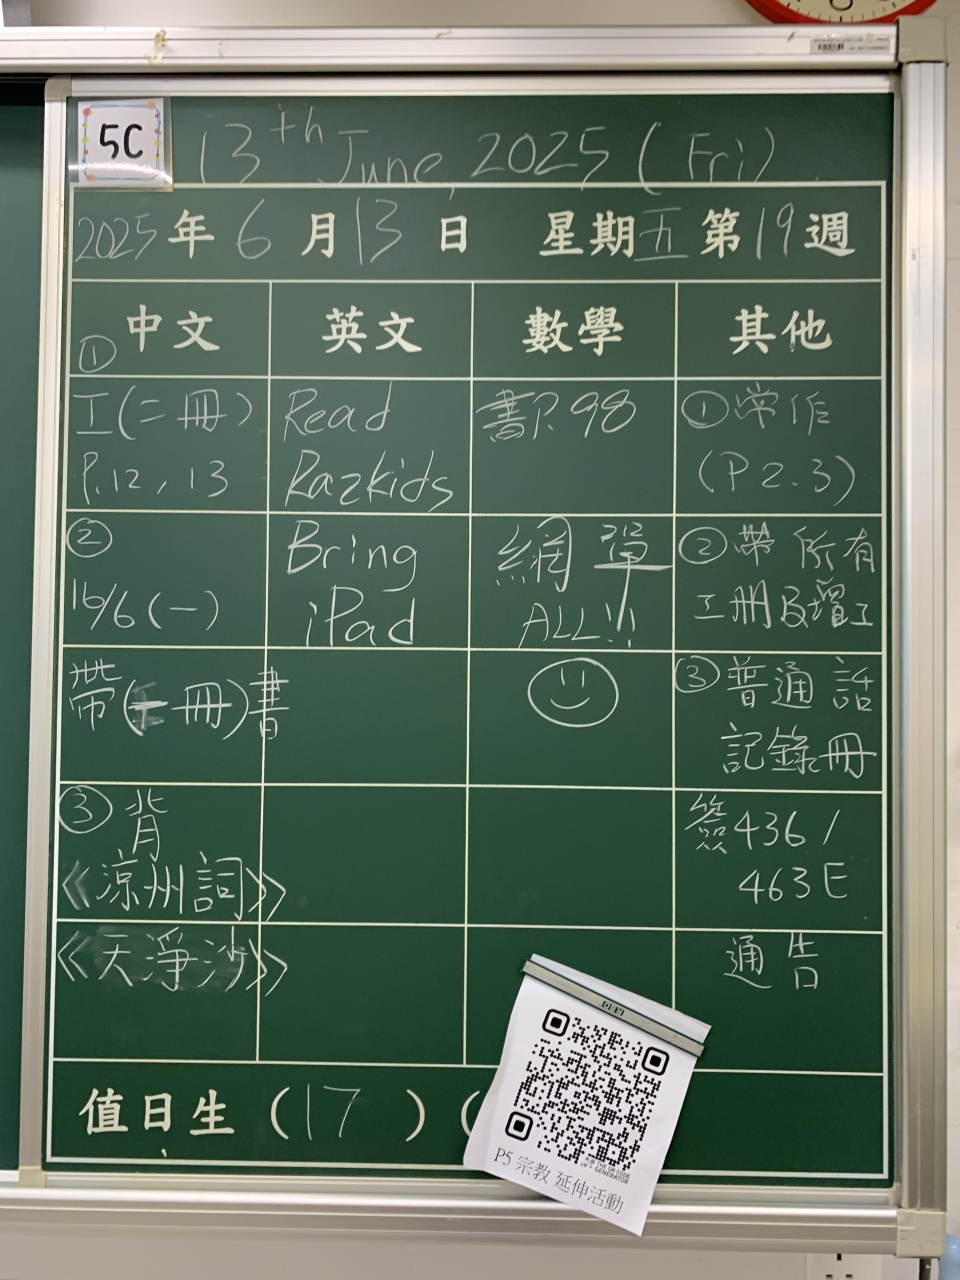 5C
13th June, 2025 (Fri)
2025年6月13日 星期五 第19週
中文 英文 數學 其他
①
工(二冊)
P.12, 13
②
16/6 (一)
帶(二冊)書
③ 背
《涼州詞》
《天淨沙》
Read
Razkids
Bring
iPad
書P.98
網單
ALL!!
①常作
(P2.3)
②帶所有
工冊及壇工
③普通話
記錄冊
簽436/
463E
通告
值日生 (17) (
P5 宗教 延伸活動